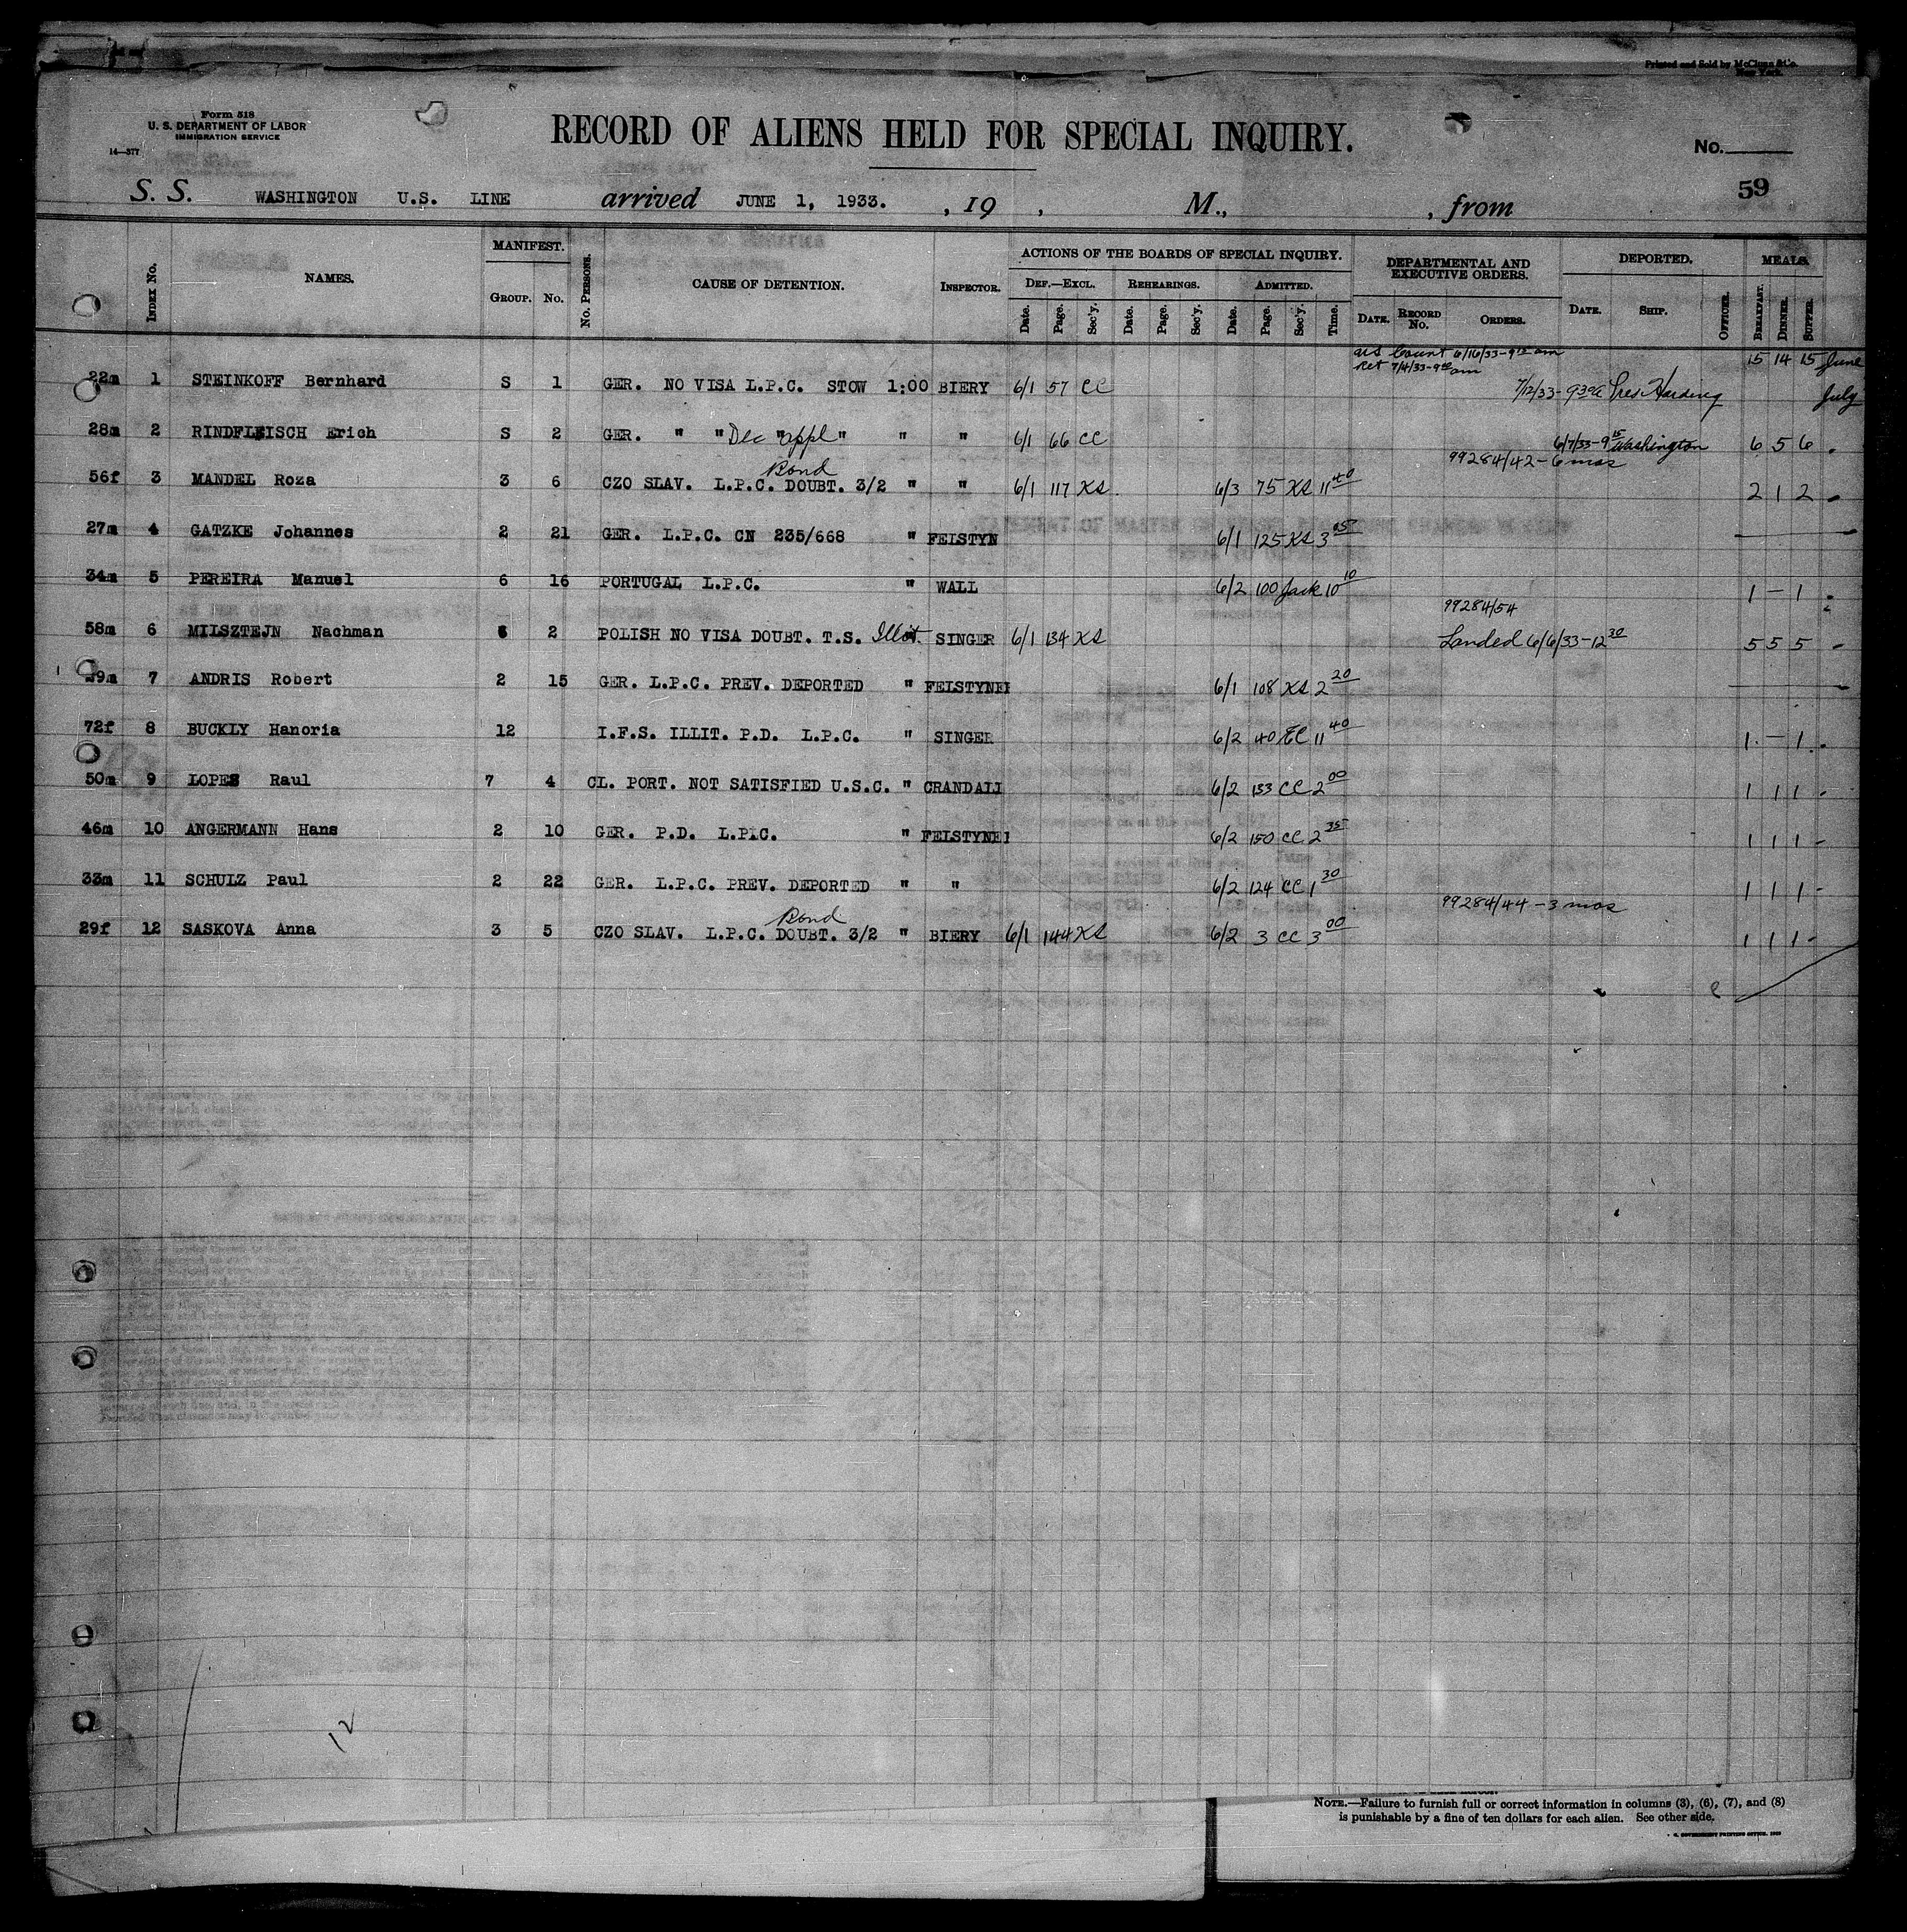 Printed and Sold by McClunn & Co.
New York.
Form 518
U. S. DEPARTMENT OF LABOR
IMMIGRATION SERVICE
14—377
RECORD OF ALIENS HELD FOR SPECIAL INQUIRY.
No.
59
S. S. WASHINGTON U.S. LINE arrived JUNE 1, 1933. , 19 , M., , from
INDEX No. NAMES. MANIFEST. GROUP. No. No. PERSONS. CAUSE OF DETENTION. INSPECTOR. ACTIONS OF THE BOARDS OF SPECIAL INQUIRY. DEF.—EXCL. Date. Page. Sec'y. REHEARINGS. Date. Page. Sec'y. ADMITTED. Date. Page. Sec'y. Time. DEPARTMENTAL AND EXECUTIVE ORDERS. DATE. RECORD No. ORDERS. DEPORTED. DATE. SHIP. OFFICER. MEALS. BREAKFAST. DINNER. SUPPER.
Court 6/16/33-9 am
ret 7/4/33-9 00 am
15 14 15 June
22m 1 STEINKOFF Bernhard S 1 GER. NO VISA L.P.C. STOW 1:00 BIERY 6/1 57 CC 7/12/33- Pres. Harding July
28m 2 RINDFLEISCH Erich S 2 GER. " " Dec "appl" " " 6/1 66 CC 6/7/33-9 15 Washington 6 5 6
Bond 99284/42-6 mos
56f 3 MANDEL Roza 3 6 CZO SLAV. L.P.C. DOUBT. 3/2 " " 6/1 117 KS. 6/3 75 KS 11 40 2 1 2
27m 4 GATZKE Johannes 2 21 GER. L.P.C. CN 235/668 " FEISTYN 6/1 125 KS 3 05
34m 5 PEREIRA Manuel 6 16 PORTUGAL L.P.C. " WALL 6/2 100 Jack 10 10 1 - 1
99284/54
58m 6 MILSZTEJN Nachman 2 POLISH NO VISA DOUBT. T.S. Illit. SINGER 6/1 134 KS Landed 6/6/33-12 30 5 5 5
39m 7 ANDRIS Robert 2 15 GER. L.P.C. PREV. DEPORTED " FEISTYNE 6/1 108 KS 2 20
72f 8 BUCKLY Hanoria 12 I.F.S. ILLIT. P.D. L.P.C. " SINGER 6/2 40 EC 11 40 1 - 1
50m 9 LOPES Raul 7 4 CL. PORT. NOT SATISFIED U.S.C. " CRANDALL 6/2 133 CC 2 00 1 1 1
46m 10 ANGERMANN Hans 2 10 GER. P.D. L.P.C. " FEISTYNE 6/2 150 CC 2 35 1 1 1
33m 11 SCHULZ Paul 2 22 GER. L.P.C. PREV. DEPORTED " " 6/2 124 CC 1 30 1 1 1
Bond 99284/44-3 mos
29f 12 SASKOVA Anna 3 5 CZO SLAV. L.P.C. DOUBT. 3/2 " BIERY 6/1 144 KS 6/2 3 CC 3 00 1 1 1
12
NOTE.—Failure to furnish full or correct information in columns (3), (6), (7), and (8)
is punishable by a fine of ten dollars for each alien. See other side.
GOVERNMENT PRINTING OFFICE